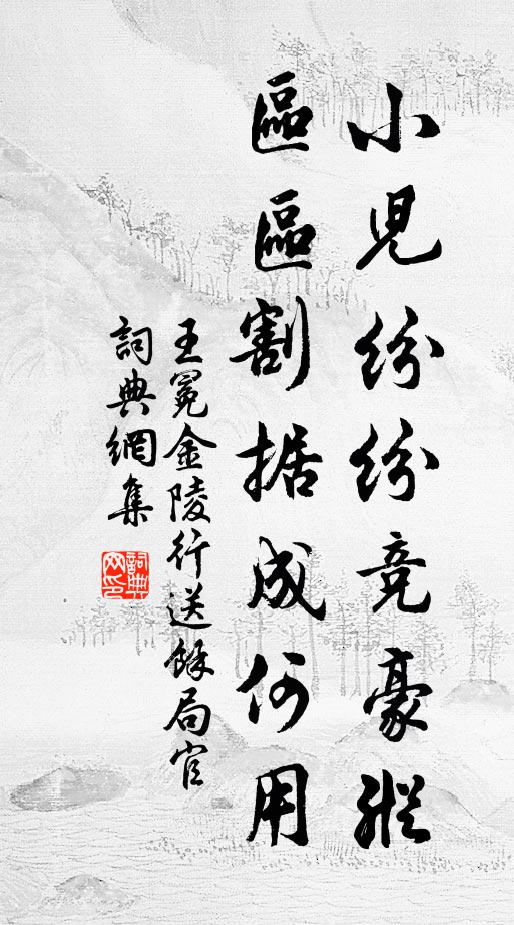 小児紛紛竞豪縱
區區割据成何用
王冕金陵行送餘局官
詞典網集
詞典网印